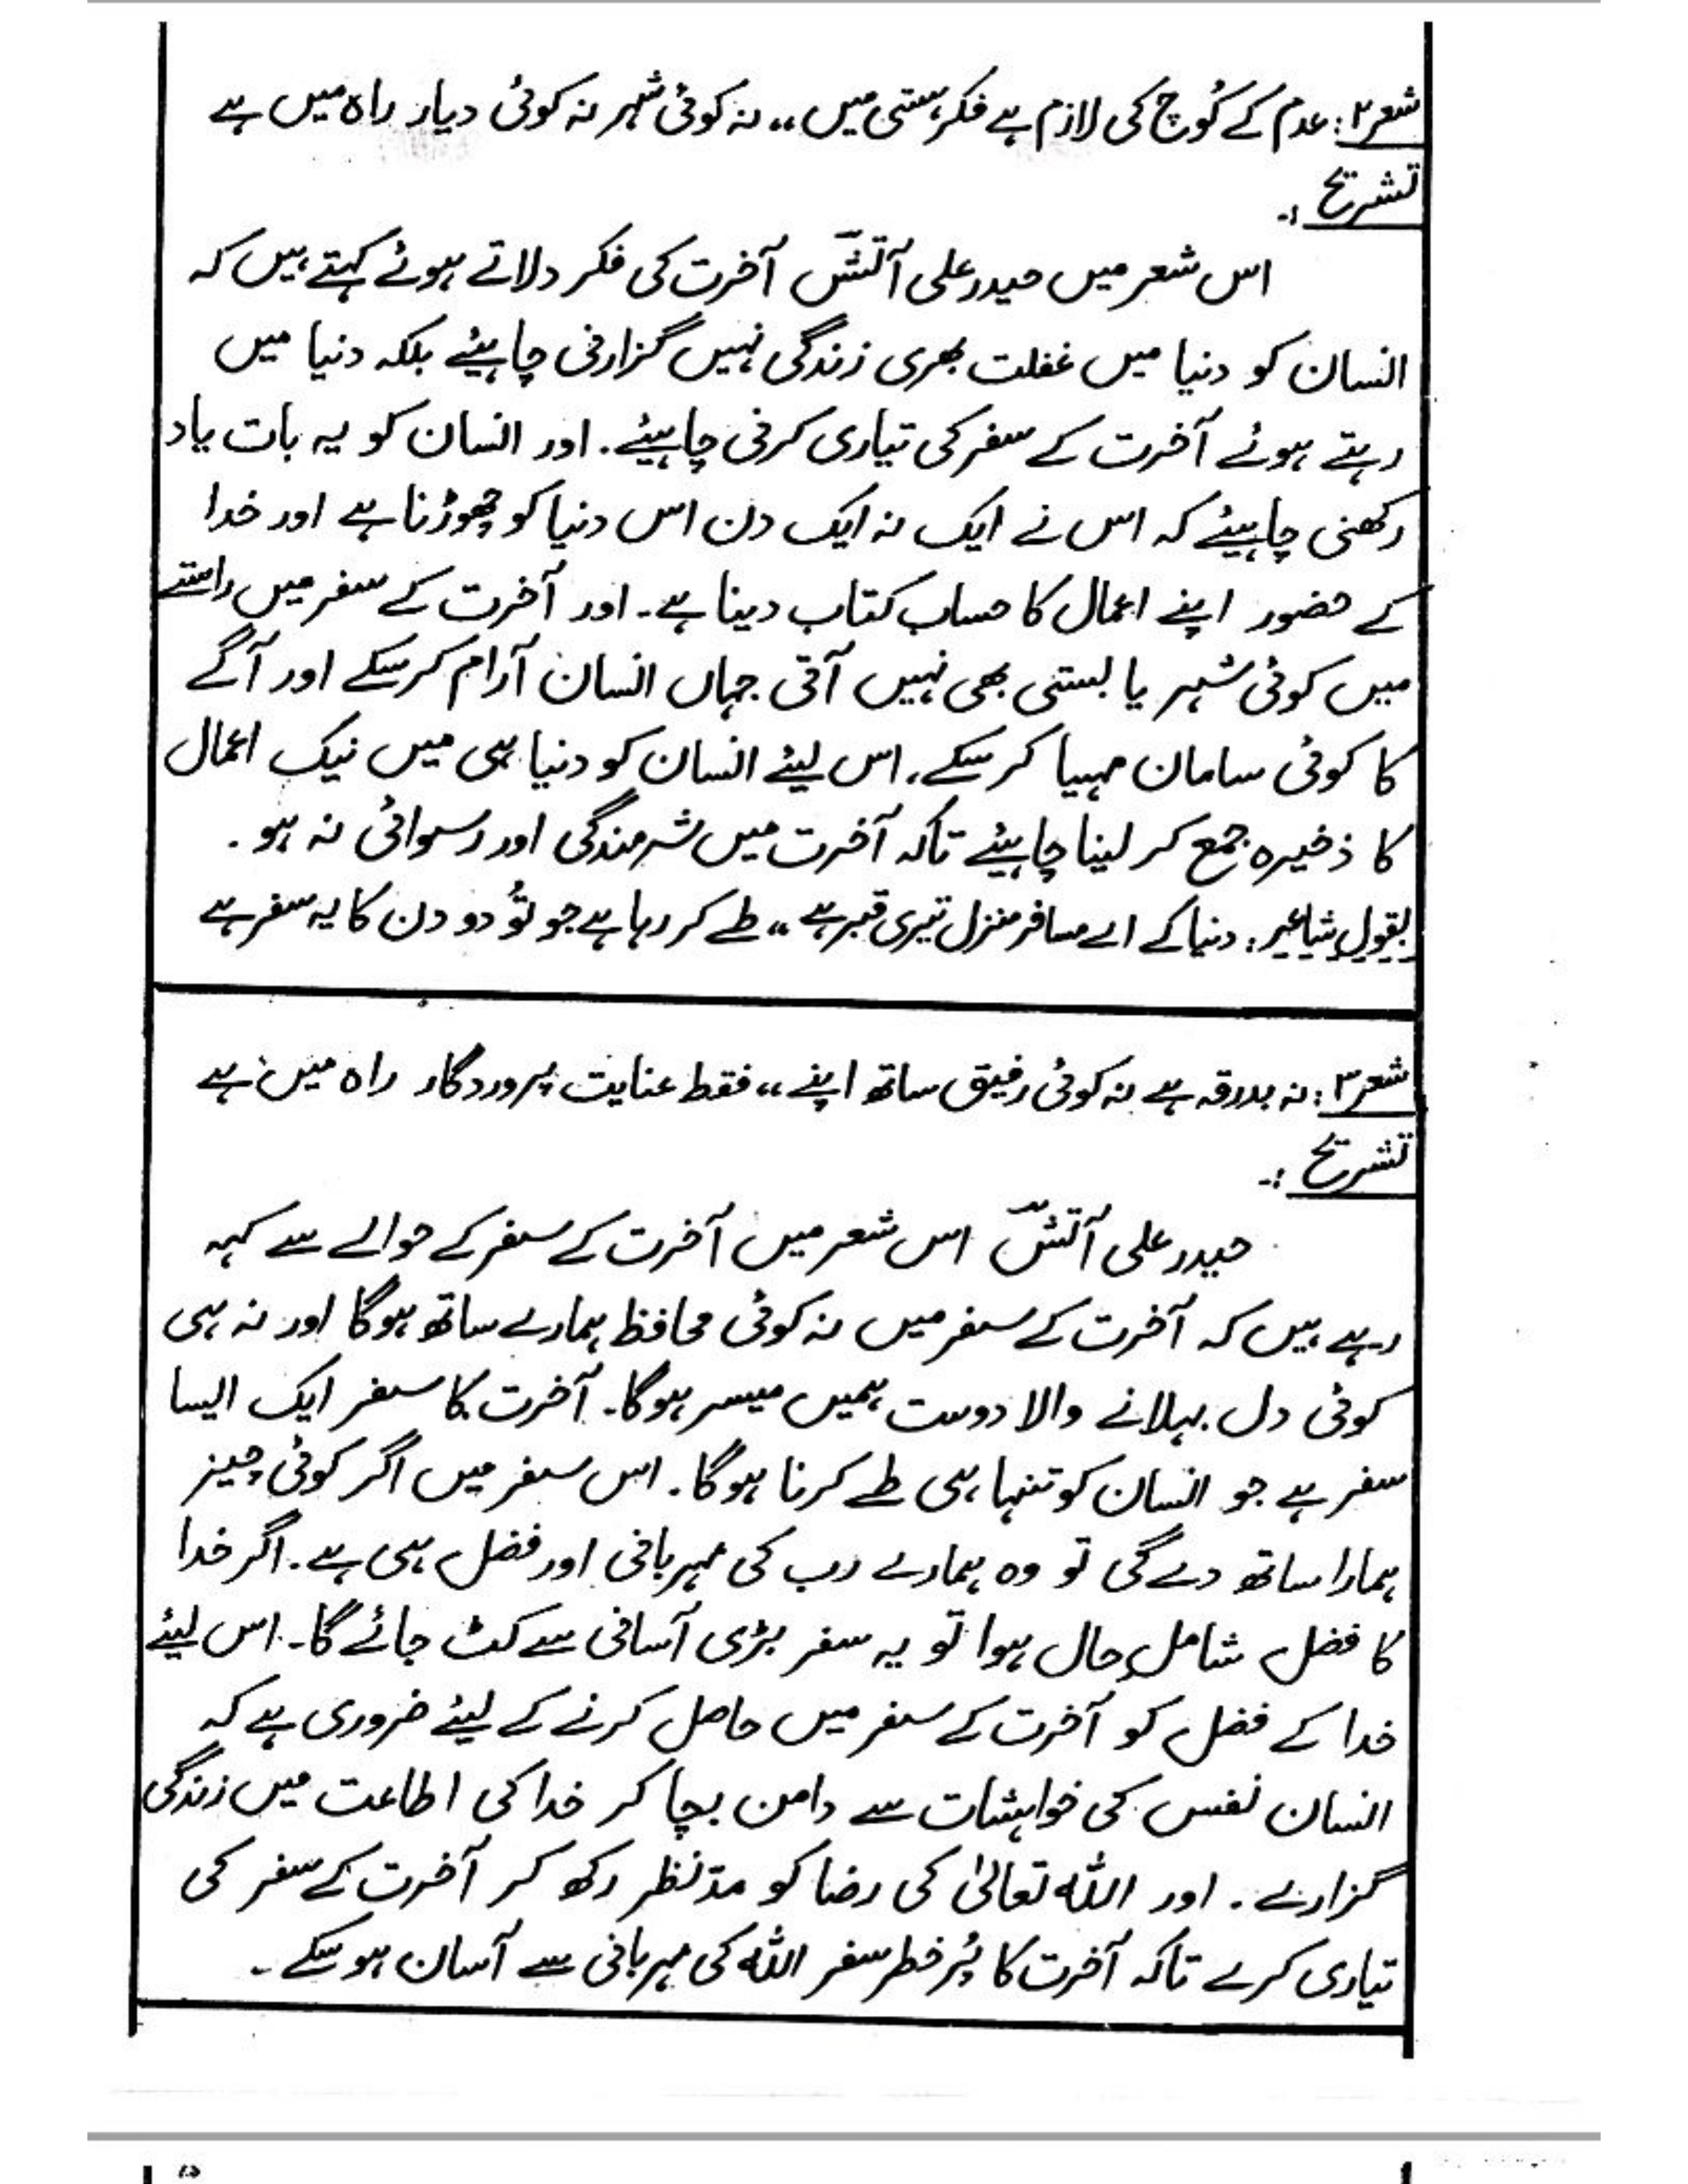 شعر۲: عدم کے کُوچ کی لازم ہے فکرِ ہستی میں ،، نہ کوئی شہر نہ کوئی دیار راہ میں ہے
تشریح :۔
اس شعر میں حیدر علی آتشؔ آخرت کی فکر دلاتے ہوئے کہتے ہیں کہ
انسان کو دنیا میں غفلت بھری زندگی نہیں گزارنی چاہیئے بلکہ دنیا میں
رہتے ہوئے آخرت کے سفر کی تیاری کرنی چاہیئے۔ اور انسان کو یہ بات یاد
رکھنی چاہیئے کہ اس نے ایک نہ ایک دن اس دنیا کو چھوڑنا ہے اور خدا
کے حضور اپنے اعمال کا حساب کتاب دینا ہے۔ اور آخرت کے سفر میں راستے
میں کوئی شہر یا بستی بھی نہیں آتی جہاں انسان آرام کر سکے اور آگے
کا کوئی سامان مہیا کر سکے، اس لیئے انسان کو دنیا ہی میں نیک اعمال
کا ذخیرہ جمع کر لینا چاہیئے تاکہ آخرت میں شرمندگی اور رسوائی نہ ہو۔
بقول شاعر: دنیا کے اے مسافر منزل تیری قبر ہے ،، طے کر رہا ہے جو تُو دو دن کا یہ سفر ہے
شعر۳: نہ بدرقہ ہے نہ کوئی رفیق ساتھ اپنے ،، فقط عنایت پروردگار راہ میں ہے
تشریح :۔
حیدر علی آتشؔ اس شعر میں آخرت کے سفر کے حوالے سے کہہ
رہے ہیں کہ آخرت کے سفر میں نہ کوئی محافظ ہمارے ساتھ ہوگا اور نہ ہی
کوئی دل بہلانے والا دوست ہمیں میسر ہوگا۔ آخرت کا سفر ایک ایسا
سفر ہے جو انسان کو تنہا ہی طے کرنا ہوگا۔ اس سفر میں اگر کوئی چیز
ہمارا ساتھ دے گی تو وہ ہمارے رب کی مہربانی اور فضل ہی ہے۔ اگر خدا
کا فضل شاملِ حال ہوا تو یہ سفر بڑی آسانی سے کٹ جائے گا۔ اس لیئے
خدا کے فضل کو آخرت کے سفر میں حاصل کرنے کے لیئے ضروری ہے کہ
انسان نفس کی خواہشات سے دامن بچا کر خدا کی اطاعت میں زندگی
گزارے۔ اور اللہ تعالیٰ کی رضا کو مدّنظر رکھ کر آخرت کے سفر کی
تیاری کرے تاکہ آخرت کا پُر خطر سفر اللہ کی مہربانی سے آسان ہو سکے۔